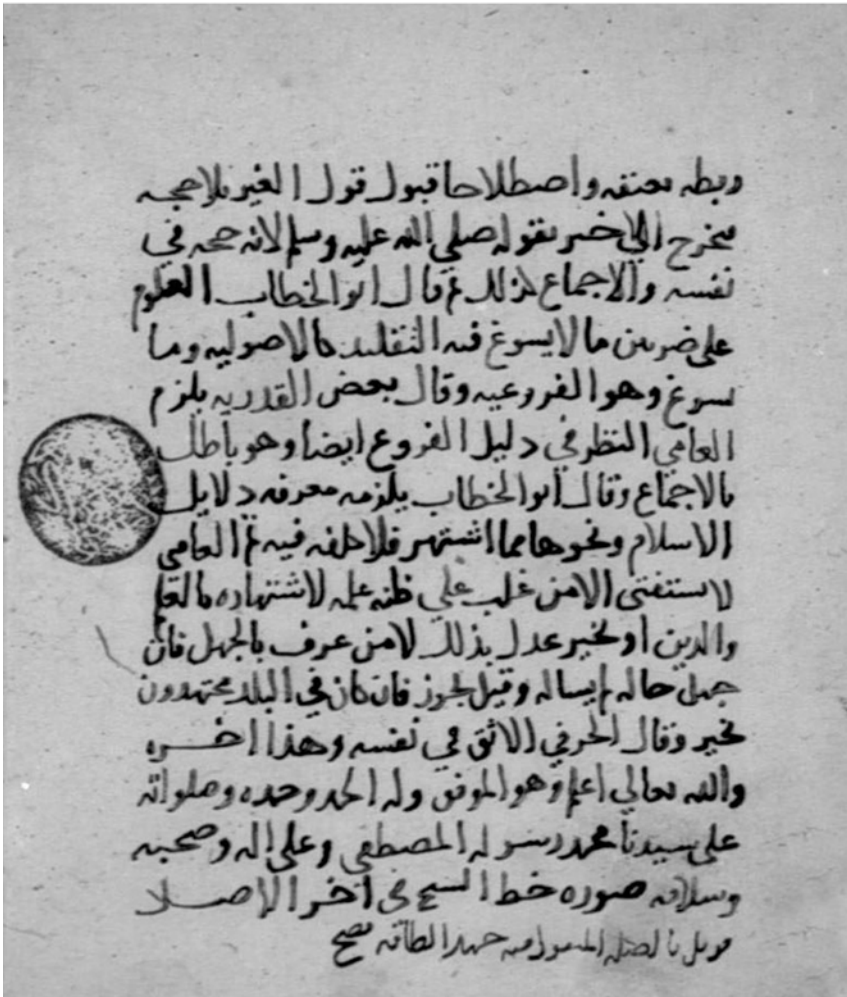 ربطه بعنقه واصطلاحا قبول قول الغير بلا حجه
فيخرج الاخبر بقوله صلي الله عليه وسلم لانه حجه في
نفسه والاجماع كذلك ثم قال ابو الخطاب العلوم
علي ضربين ما لا يسوغ فيه التقليد كالاصوليه وما
يسوغ وهو الفروعيه وقال بعض القدريه يلزم
العامي النظر في دليل الفروع ايضا وهو باطل
بالاجماع وقال ابو الخطاب يلزمه معرفه دلايل
الاسلام ونحوها مما اشتهر فلا كلفه فيه ثم العامي
لا يستفتي الا من غلب علي ظنه علمه لاشتهاره بالعلم
والدين او بخبر عدل بذلك لا من عرف بالجهل فان
جهل حاله لم يساله وقيل يجوز فان كان في البلد مجتهدون
تخير وقال الخرقي الاثق في نفسه وهذا اخره
والله تعالي اعلم وهو الموفق وله الحمد وحده وصلواته
علي سيدنا محمد رسوله المصطفي وعلي اله وصحبه
وسلامه صوره خط الشيخ في اخر الاصل
قوبل بالاصل المنقول منه جهد الطاقه فصح